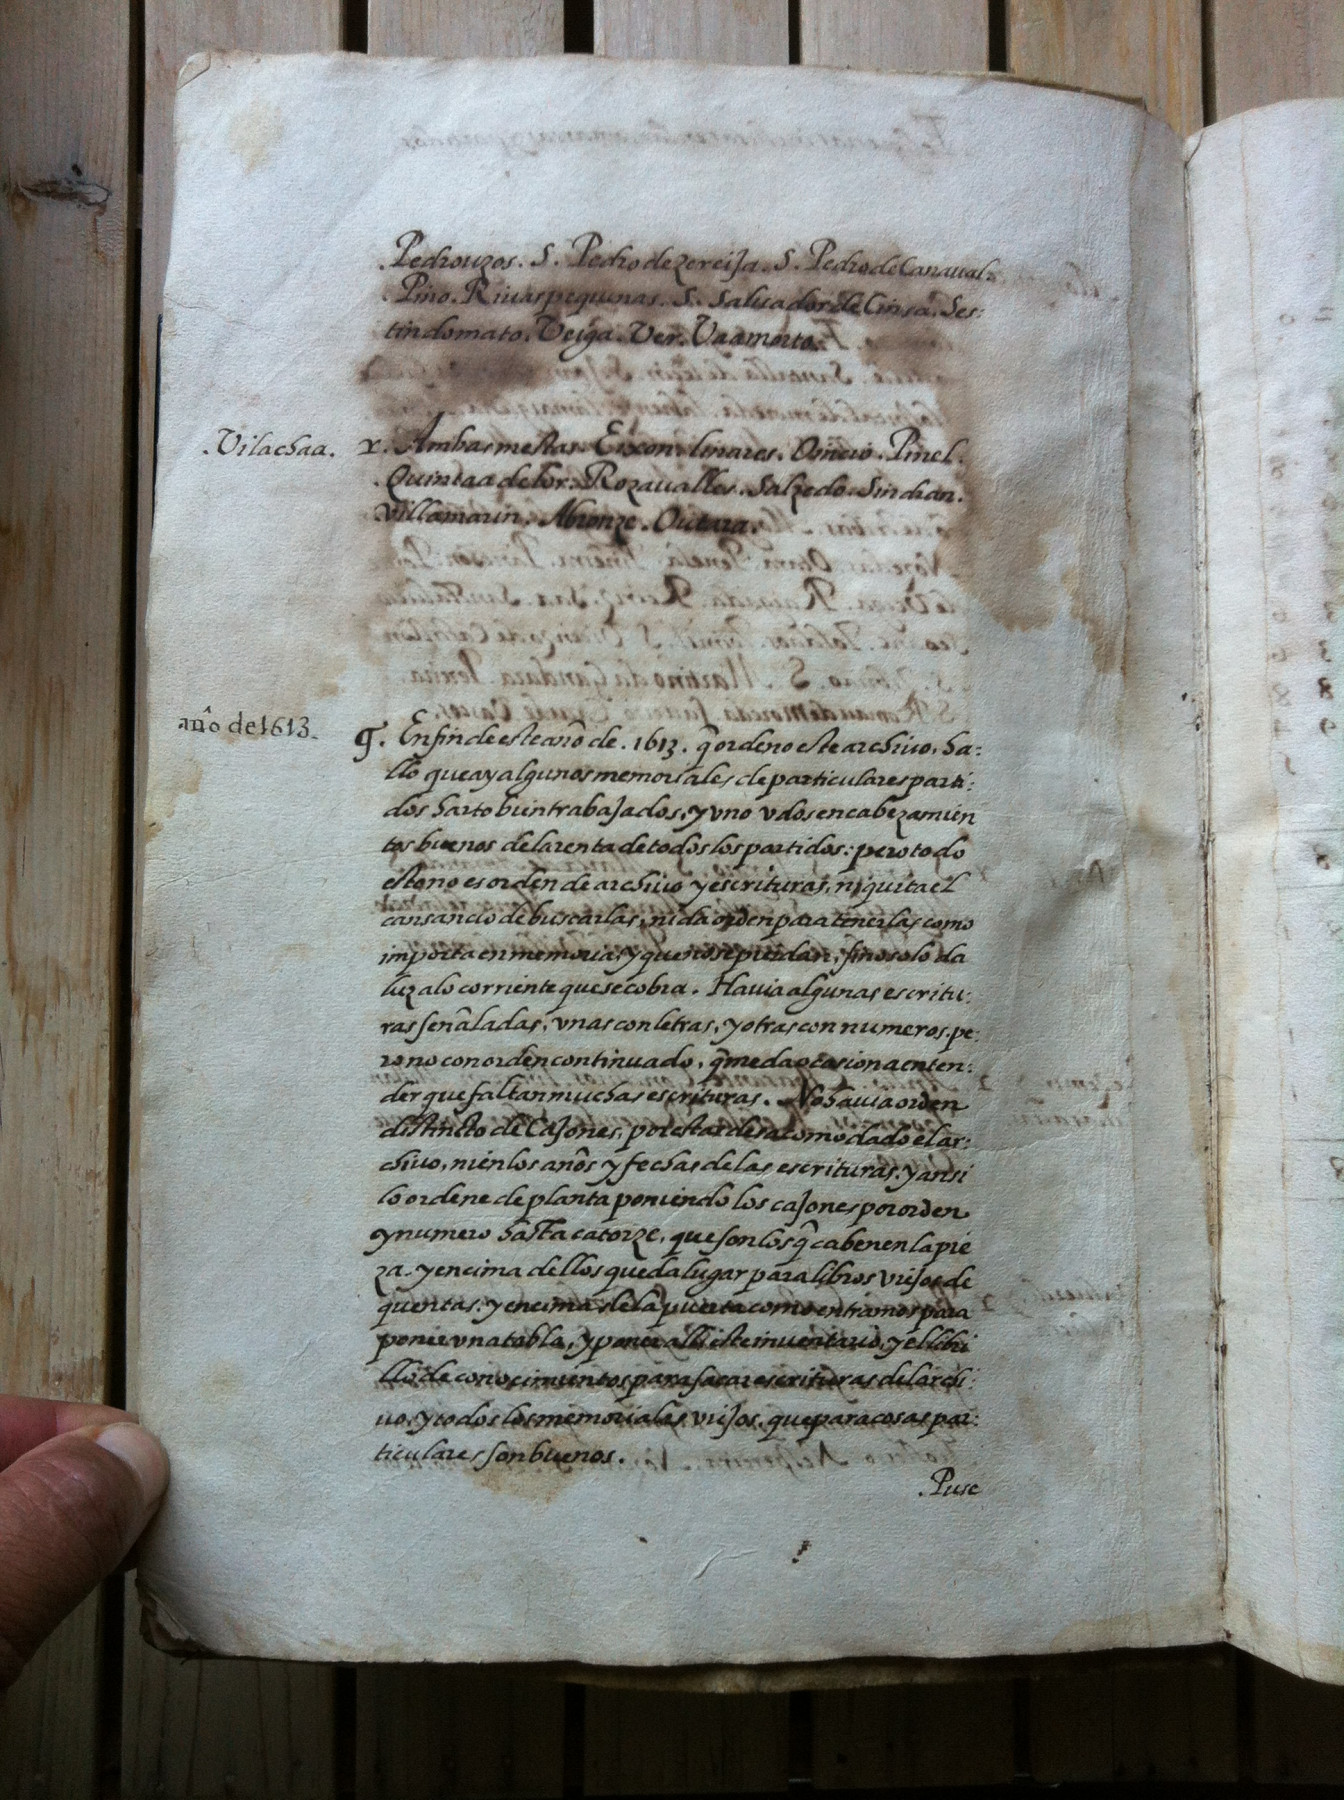 .Pedrouzos. S. Pedro de zereija. S. Pedro de Canaual.
.Pino. Riuaspequnas. S. Saluador de Cinsa. Ses:
tindomato. Veiga. Ver. Vaamorto.
.Vilachaa. r. Ambasmestas. Eixon. linares. Ouicio. Pinel.
.Quintaa de lor. Rozaualles. Salzedo. Sindran.
Villamarin. Abronze. Outara.
anô de 1613.
9. En fin de este anô de .1613. q̃ ordeno este archiuo, ha:
llo que ay algunos memoriales de particulares parti:
dos harto buen trabajados, y vno v dos encabezamien
tos buenos de la renta de todos los partidos: pero todo
esto no es orden de archiuo y escrituras, ni quita el
cansancio de buscarlas, ni da orden para tenerlas como
importa en memoria, y que no se pierdan, sino solo da
luz a lo corriente que se cobra. Hauia algunas escritu:
ras señaladas, vnas con letras, y otras con numeros. pe:
ro no con orden continuado, q̃ me da ocasion a enten:
der que faltan muchas escrituras. No hauia orden
distincto de Cajones, por estar desacomodado el ar:
chiuo, ni en los anôs y fechas de las escrituras. y ansi
lo ordene de planta poniendo los cajones por orden
y numero hasta catorze, que son los q̃ caben en la pie
za. y encima dellos queda lugar para libros viejos de
quentas: y encima de la puerta como entramos para
poner vna tabla, y poner alli este inuentario, y el libri
llo de conocimientos para sacar escrituras del archi:
uo, y todos los memoriales viejos, que para cosas par:
ticulares son buenos.
.Puse